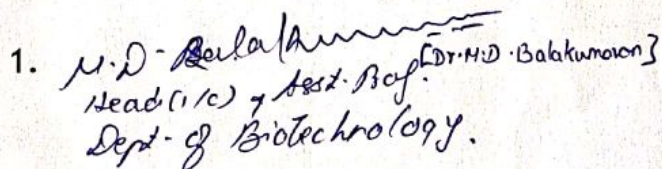 1. M.D. Balakumaran [Dr.M.D.Balakumaran]
Head (i/c) & Asst. Prof.
Dept. of Biotechnology.